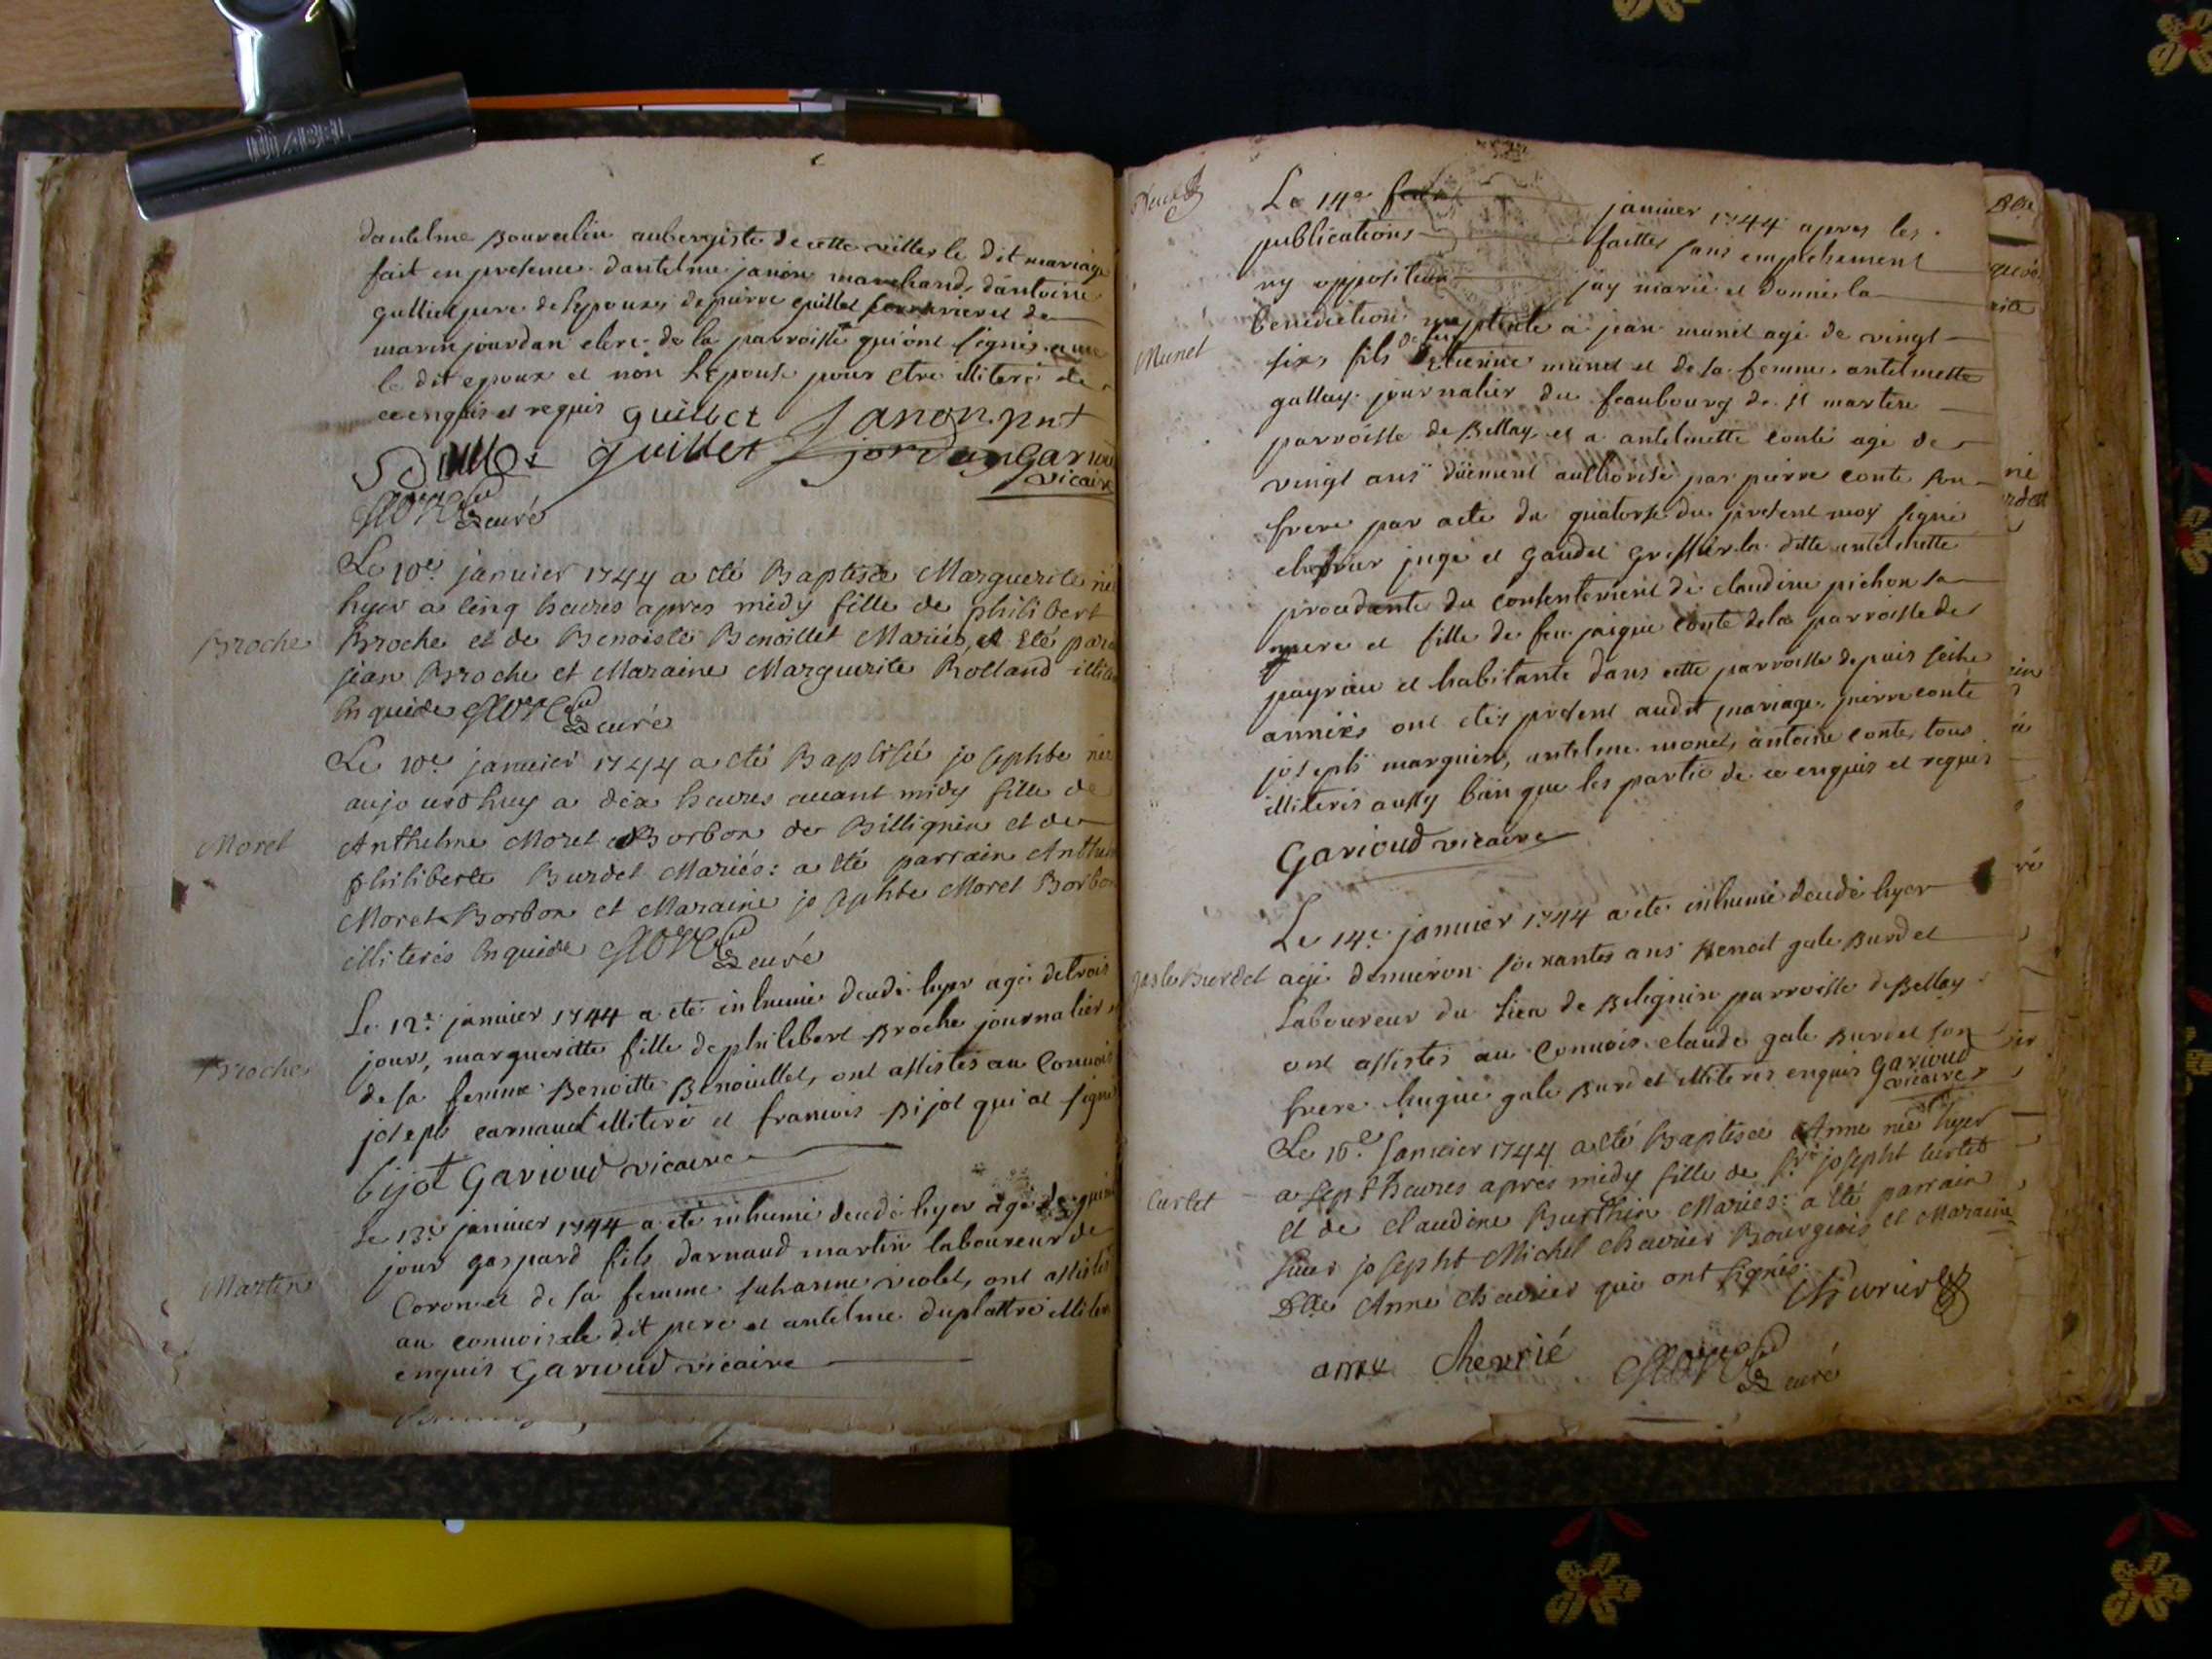 dantelme Bourdin aubergiste de cette ville, le dit mariage
fait en presence dantelme janon marchand, dantoine
pere de lepouse, de pierre guillet et de
marin jourdan clerc de la parroisse qui ont signés avec
le dit epoux et non Lepouse pour etre illiteré de
ce enquis et requis guillet Janon pnt
guillet jordan Gariou
vicaire
curé
Le 10e janvier 1744 a été Baptisée Marguerite né
hyer a cinq heures apres midy fille de philibert
Broche Broche et de Benoiste Benoillet Mariés, a Eté para
jean Broche et Maraine Marguerite Rolland illite
Enquide curé
Le 10e janvier 1744 a été Baptisée josephte née
aujourdhuy a dix heures avant midy fille de
Morel Anthelme Morel Borbon de Billignin et de
philiberte Burdet Mariés: a été parrain Anthel
Morel Borbon et Maraine josephte Morel Borbon
illiterés Enquide curé
Le 12e janvier 1744 a eté inhumé decedé hyer agé de trois
jours, margueritte fille de philibert Broche journalier et
Broche de sa femme Benoitte Benoillet, ont assistés au Convois
joseph carnaud illiteré et francois Bijot qui at signé
bijot Garioud vicaire
Le 13e janvier 1744 a eté inhumé decedé hyer agé de quinz
jour gaspard fils darnaud martin laboureur de
Martin Coron et de sa femme suzanne violet, ont assistés
au convois le dit pere et antelme duplattre illiter
enquis Garioud vicaire
Le 14e janvier 1744 apres les
publications faittes sans empechement
ny opposition jay marié et donnés la
benediction nuptiale a jean munet agé de vingt
Munet six, fils de feu Etienne munet et de sa femme antelmette
gallay journalier du feaubourg de st martin
parroisse de Bellay et a antelmette conte agé de
vingt ans düement authorisé par pierre conte son
frere par acte du quatorse du present moy signé
chevrier juge et Gaudet Greffier la ditte antelmette
procedante du consentement de claudine pichon sa
mere et fille de feu jaique conte de la parroisse de
payrieu et habitante dans cette parroisse depuis seize
années ont étés present audit mariage, pierre conte
joseph marguin, antelme monet, antoine conte, tous
illiterés aussy bien que les partie de ce enquis et requis
Garioud vicaire
Le 14e janvier 1744 a eté inhumé decedé hyer
gale Burdet agé denviron soixantes ans Benoit gale Burdet
Laboureur du Lieu de Belignin parroisse de Bellay
ont assistés au Convois claude gale Burdet son
frere hugue gale Burdet illiterés enquis Garioud
vicaire
Le 16e Janvier 1744 a été Baptisée Anne née hyer
a sept heures apres midy fille de sr josepht curtet
Curtet et de Claudine Burthin Mariés: a été parrain
sieur josepht Michel chevrier Bourgeois et Maraine
Dlle Anne chevrier qui ont signés. Chevrier
anne chevrié curé